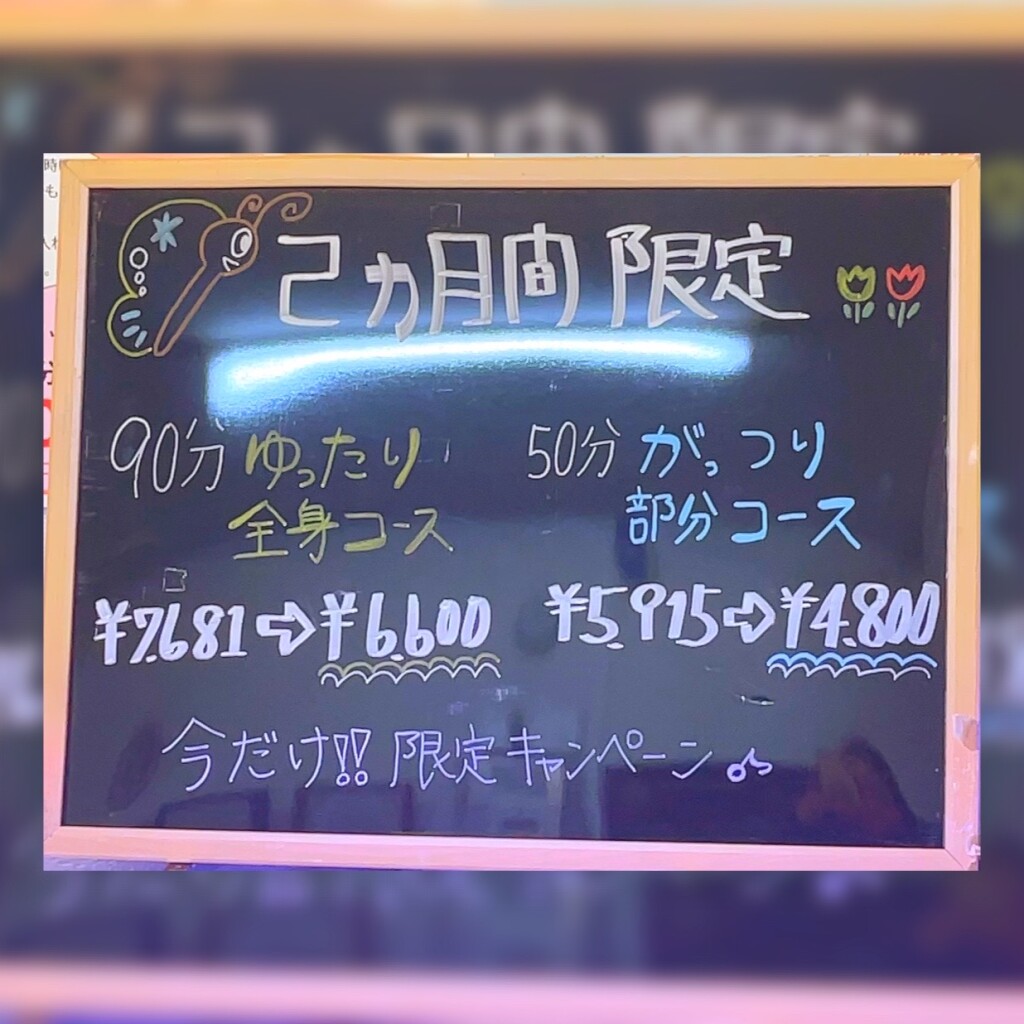 2ヵ月間限定
90分 ゆったり
全身コース
¥7.681⇨¥6.600
50分 がっつり
部分コース
¥5.915⇨¥4.800
今だけ!! 限定キャンペーン♪